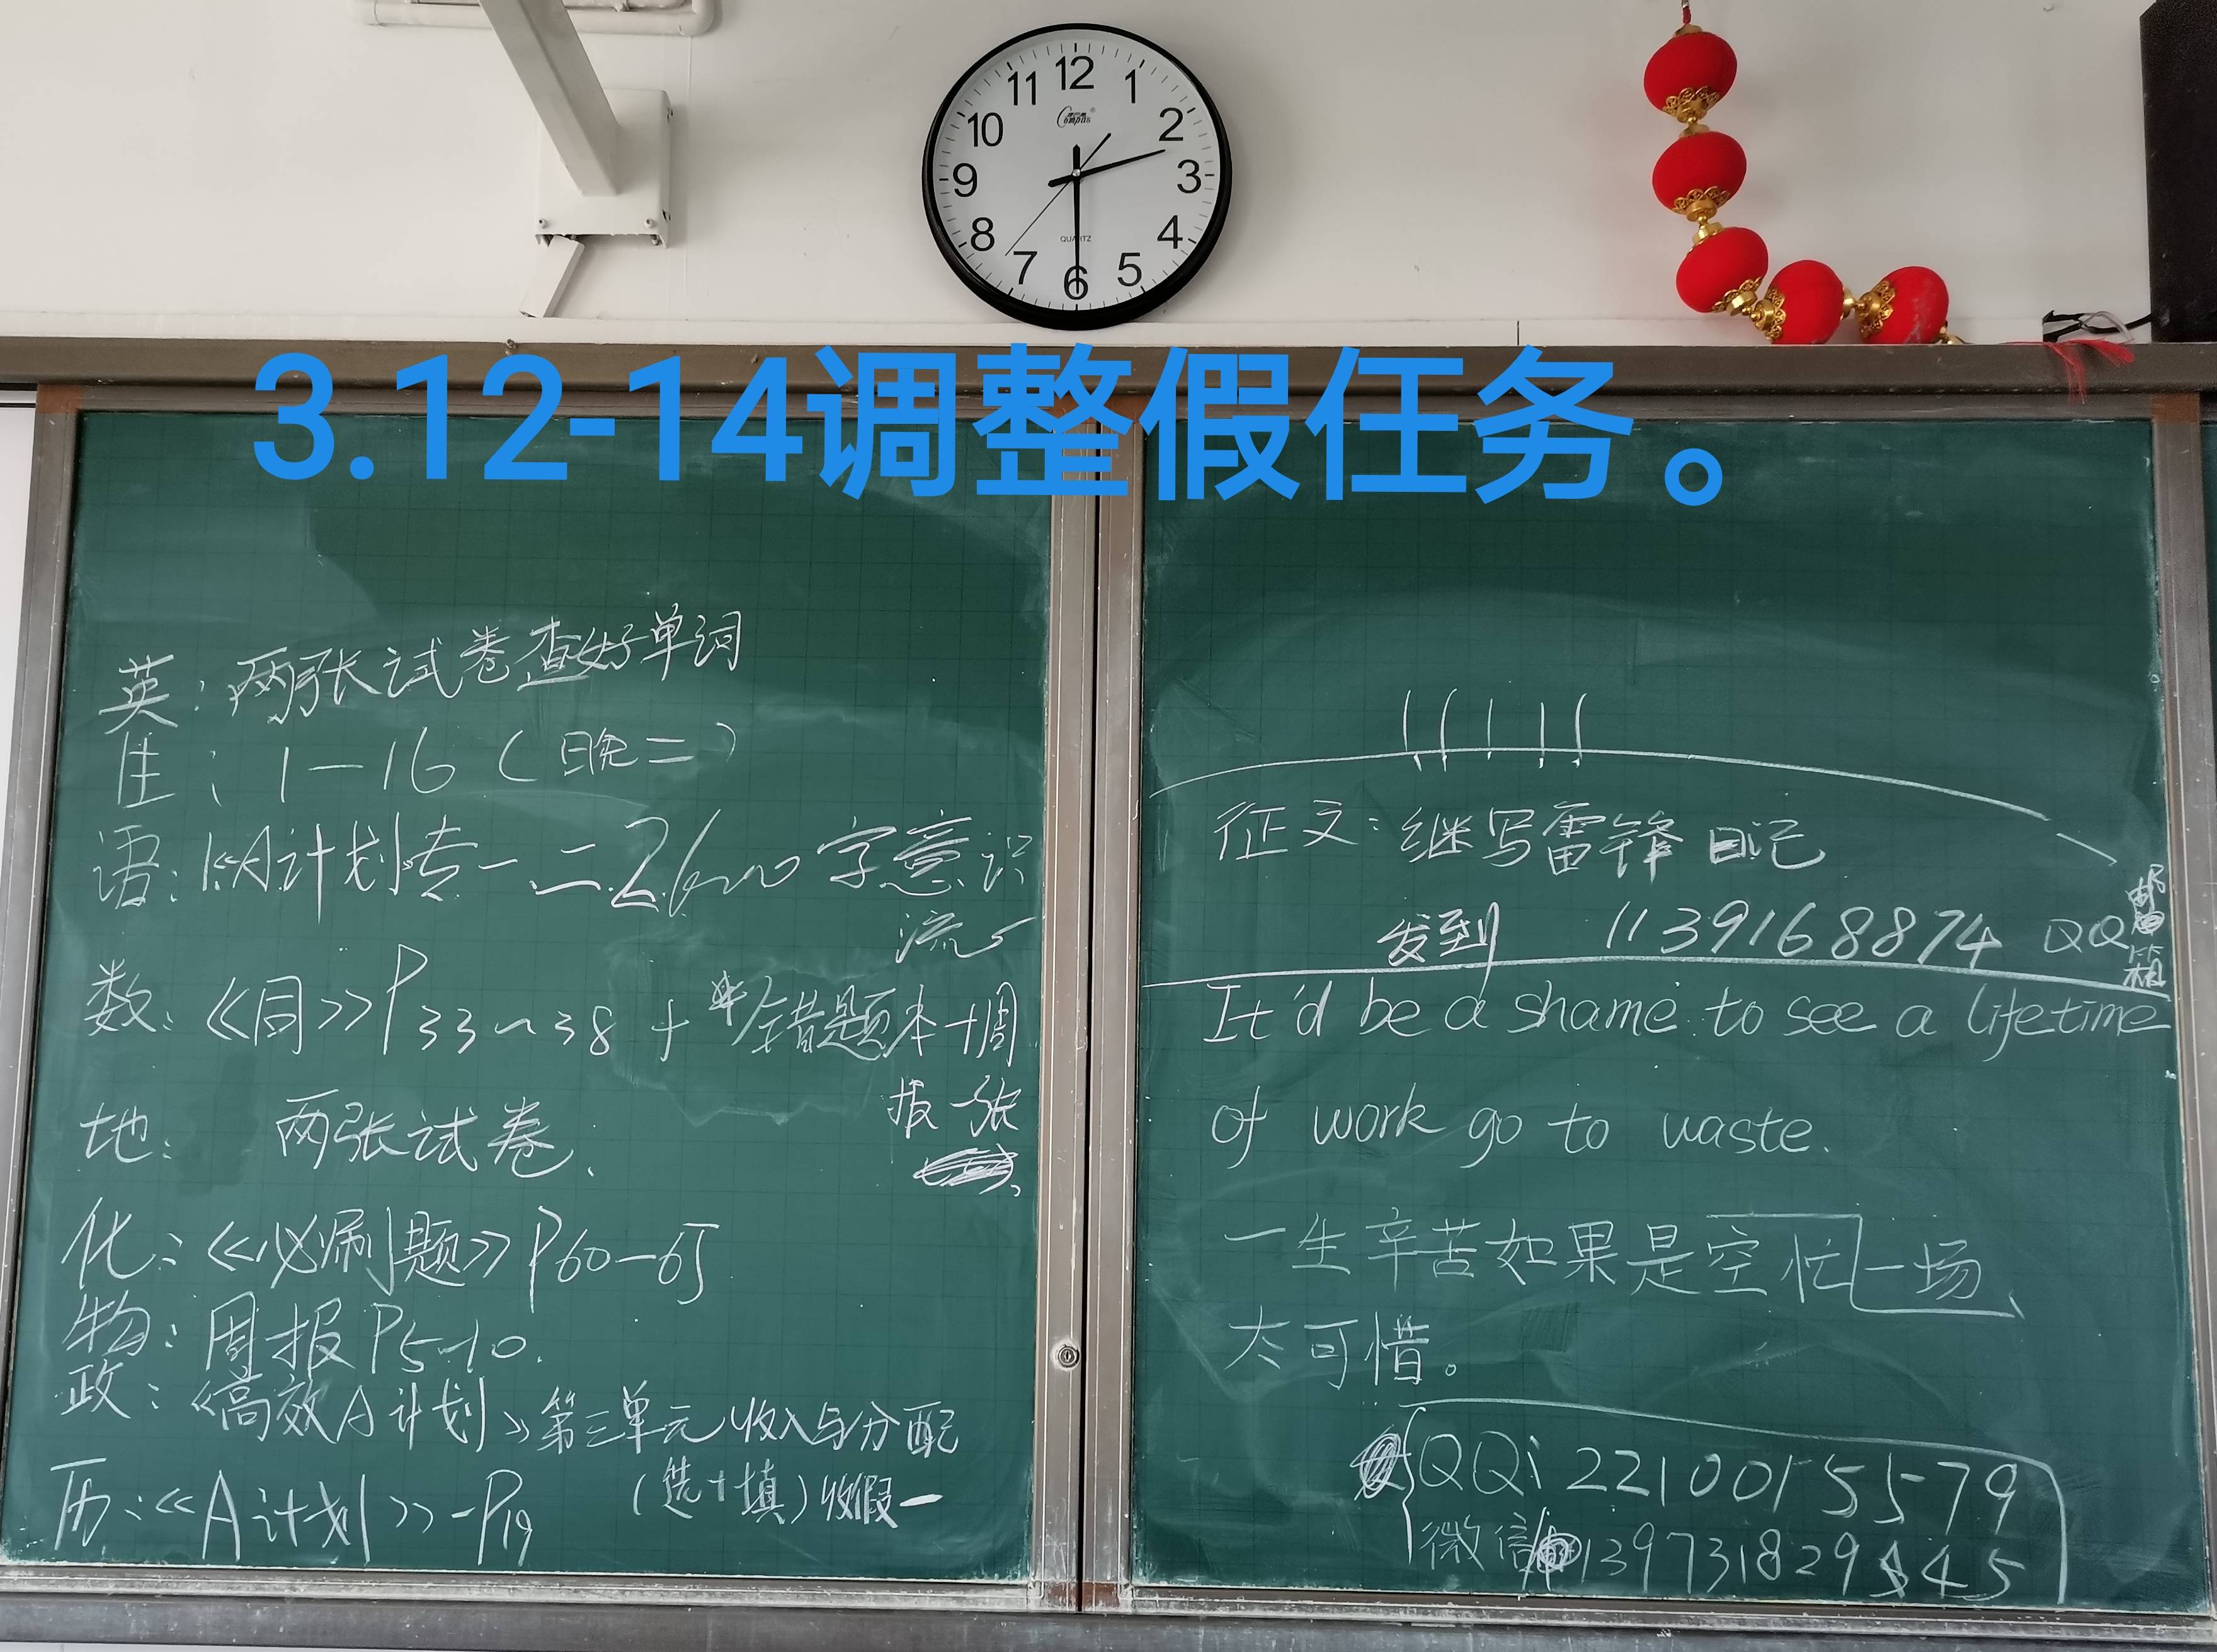 12
1
2
3
4
5
6
7
8
9
10
11
Compas
QUARTZ
3.12-14调整假任务。
英:两张试卷查好单词
1—16(晚二)
语:《A计划》专一、二、字意识
流
数:《目》P33~38+错题本+周
报一张
地:两张试卷.
化:《必刷题》P60—65
物:周报P5-10.
政:《高效A计划》第三单元收入与分配
(选+填)收假一
历:《A计划》-P19
征文:继写雷锋日记
发到 1139168874 QQ邮箱
It'd be a shame to see a lifetime
of work go to waste.
一生辛苦如果是空忙一场,
太可惜。
QQ:
微信